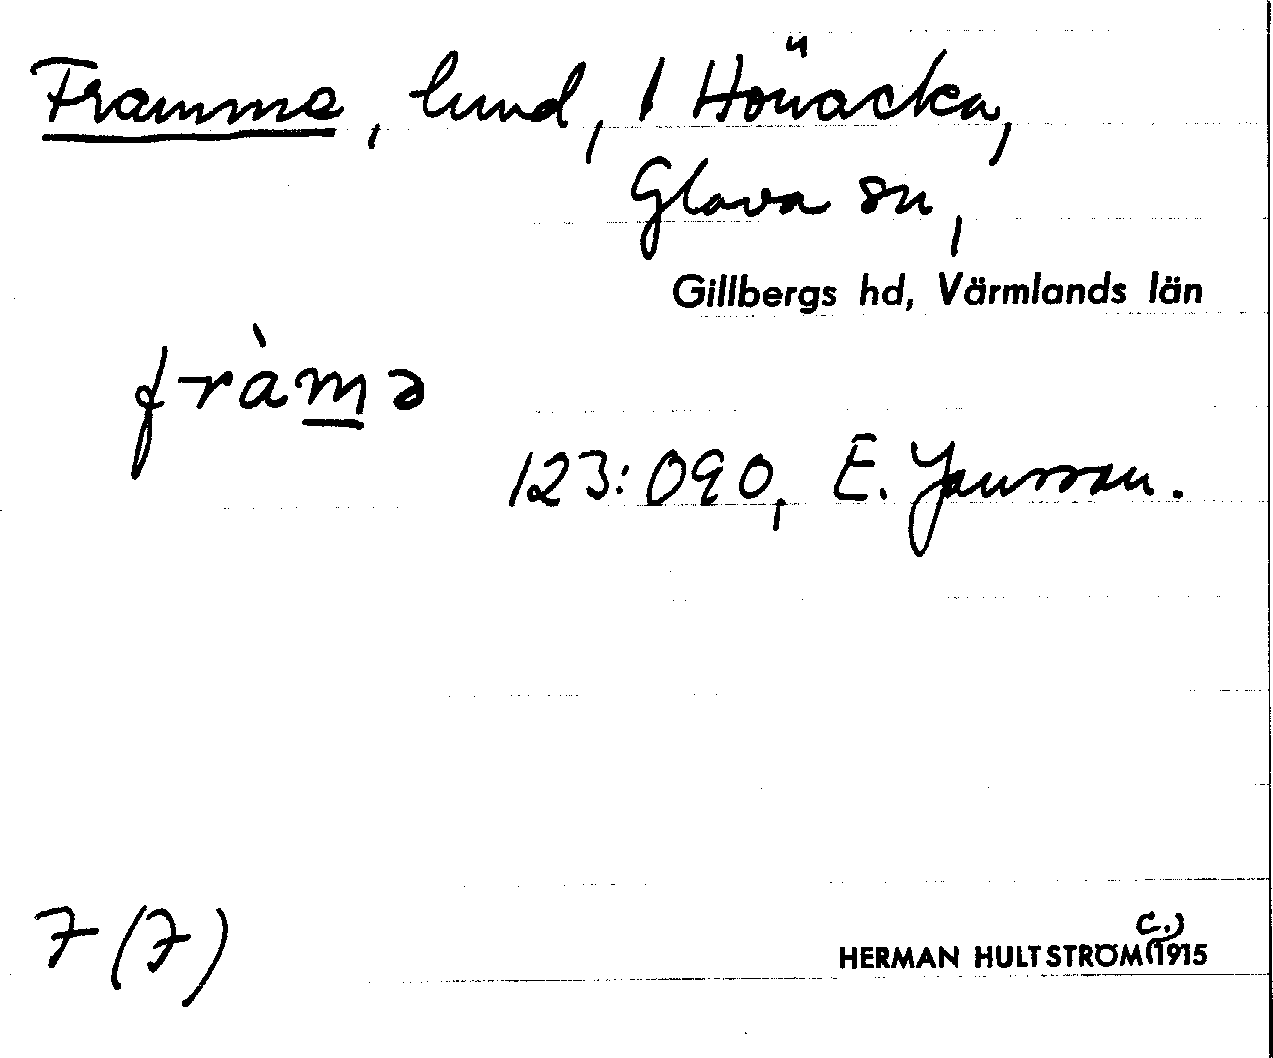 Framme, lund, 1 Höuacka,
Glava sn,
Gillbergs hd, Värmlands län
fràmə
123:090, E. Jansson.
7 (7)
HERMAN HULTSTRÖM (C.) 1915